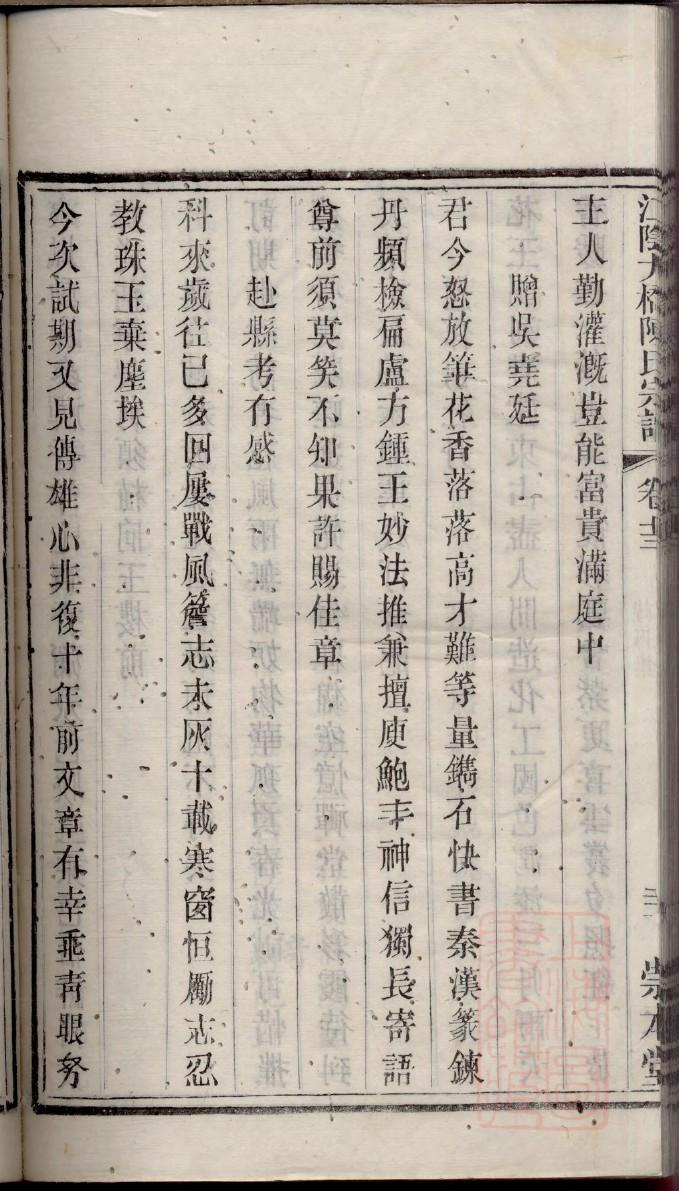 江陰大橋陳氏宗譜 卷十三 崇本堂
主人勤灌溉豈能富貴滿庭中
贈吳堯廷
君今怒放筆花香落落高才難等量鐫石快書秦漢篆鍊
丹頻檢扁盧方鍾王妙法推兼擅庾鮑丰神信獨長寄語
尊前須莫笑不知果許賜佳章
赴縣考有感
科來歲往已多回屢戰風簷志未灰十載寒窗恒勵志忍
教珠玉棄塵埃
今次試期又見傳雄心非復十年前文章有幸垂靑眼努